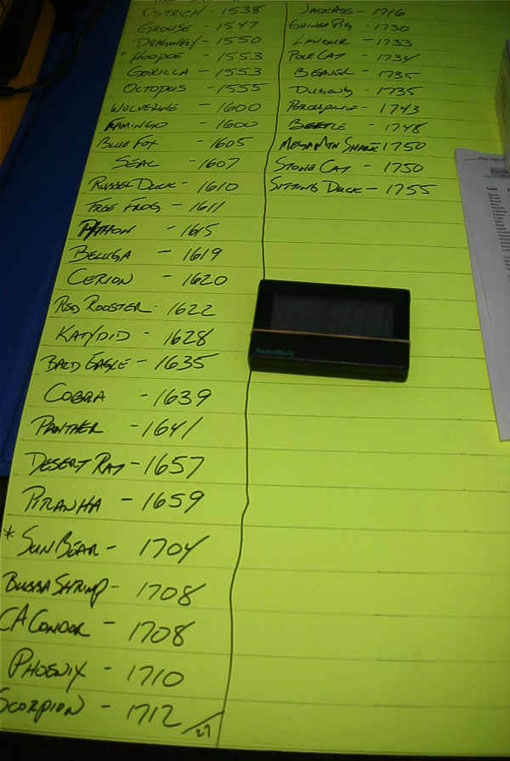 OSTRICH - 1538
GROUSE - 1547
DRAGONFLY - 1550
* HOOPOE - 1553
GORILLA - 1553
OCTOPUS - 1555
WOLVERINE - 1600
FLAMINGO - 1600
BLUE FOX - 1605
SEAL - 1607
RUBBER DUCK - 1610
FREE FROG - 1611
PYTHON - 1615
BELUGA - 1619
CERION - 1620
RED ROOSTER - 1622
KATYDID - 1628
BALD EAGLE - 1635
COBRA - 1639
PANTHER - 1641
DESERT RAT - 1657
PIRANHA - 1659
* SUN BEAR - 1704
BUBBA SHRIMP - 1708
CA CONDOR - 1708
PHOENIX - 1710
SCORPION - 1712
27
JACKASS - 1716
GUINEA PIG - 1730
1733
POLE CAT - 1734
1735
DUGONG - 1735
PORCUPINE - 1743
BEETLE - 1748
MEGAMTN SHARK 1750
STONE CAT - 1750
SITTING DUCK - 1755
RadioShack